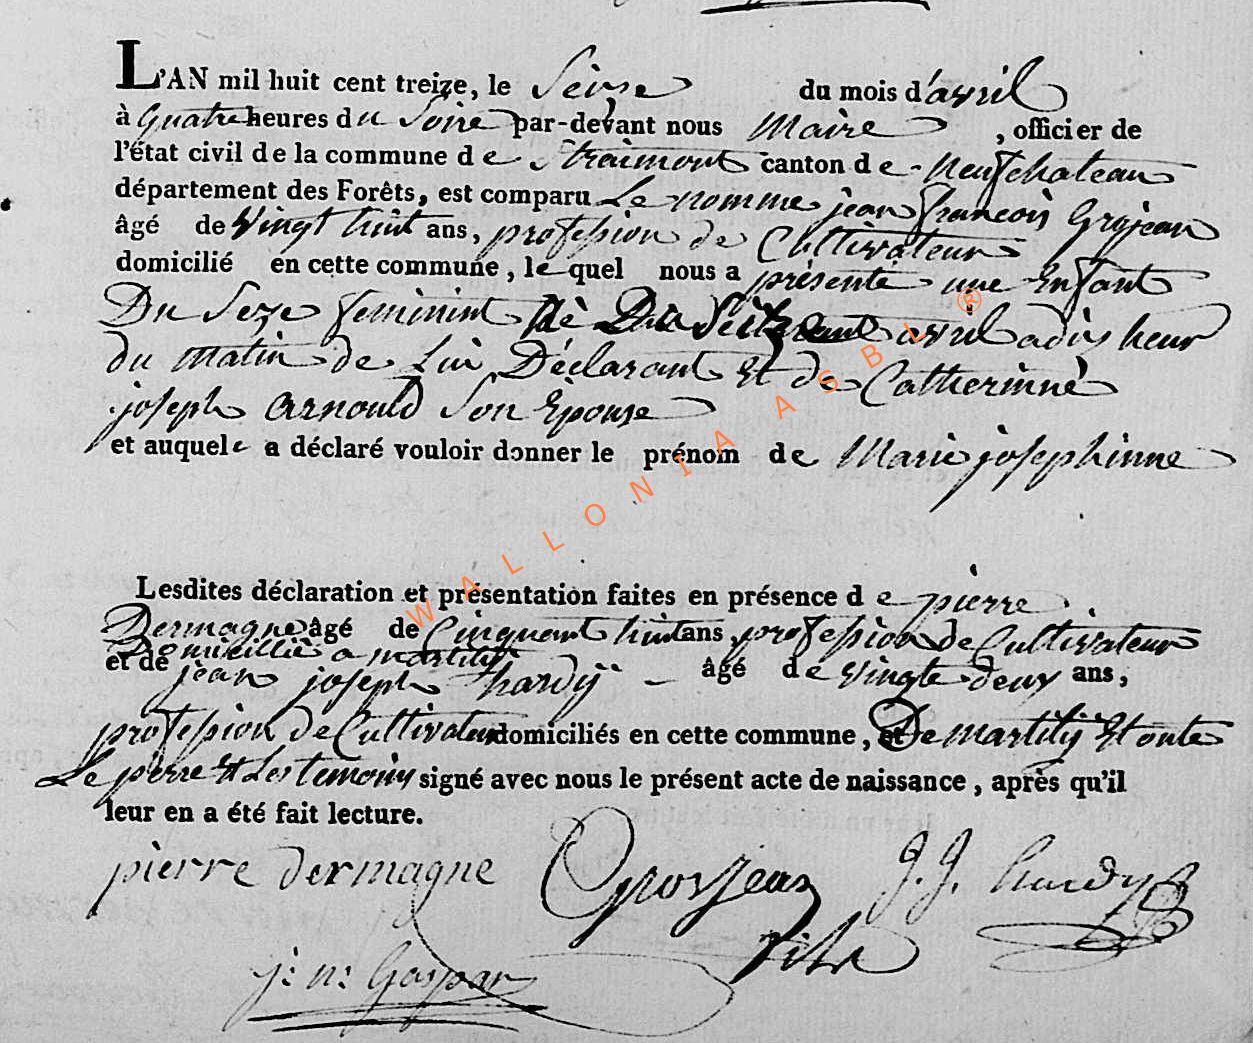 L'AN mil huit cent treize, le Seize du mois d'avril
à Quatre heures du Soire par-devant nous Maire, officier de
l'état civil de la commune de Straimont canton de Neufchateau
département des Forêts, est comparu Le nomme jean françois Grosjean
âgé de Vingt huit ans, profession de Cultivateur
domicilié en cette commune, lequel nous a présenté une Enfant
Du Sexe feminint Né avril a dis heur
du matin de Lui Déclarant Et de Catherinne
joseph arnould Son Epouse
et auquele a déclaré vouloir donner le prénom de Marie josephinne
Lesdites déclaration et présentation faites en présence de pierre
Dermagne âgé de Cinquant huit ans, profession de Cultivateur
Domicillié a martilij
et de jean joseph hardÿ âgé de vingte deux ans,
profession de Cultivateur domiciliés en cette commune, et De martilij Et onte
Le pierre Et Les temoins signé avec nous le présent acte de naissance, après qu'il
leur en a été fait lecture.
pierre dermagne Grosjean J. J. hardy
j: n: Gaspar
WALLONIA ASBL ®